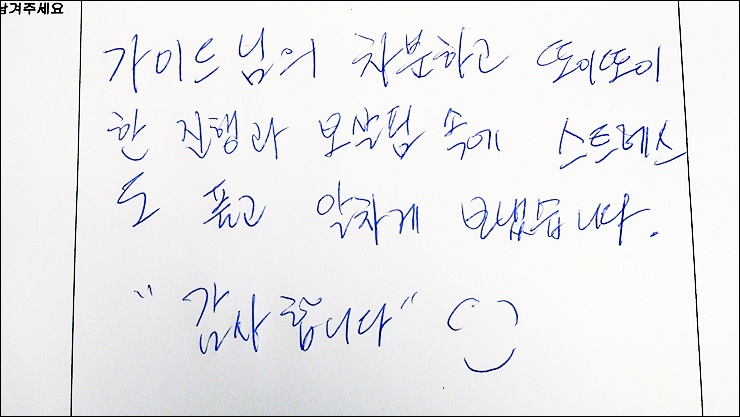 남겨주세요
가이드님의 차분하고 또이또이
한 진행과 보살핌 속에 스트레스
도 풀고 알차게 보냈습니다.
"감사합니다"